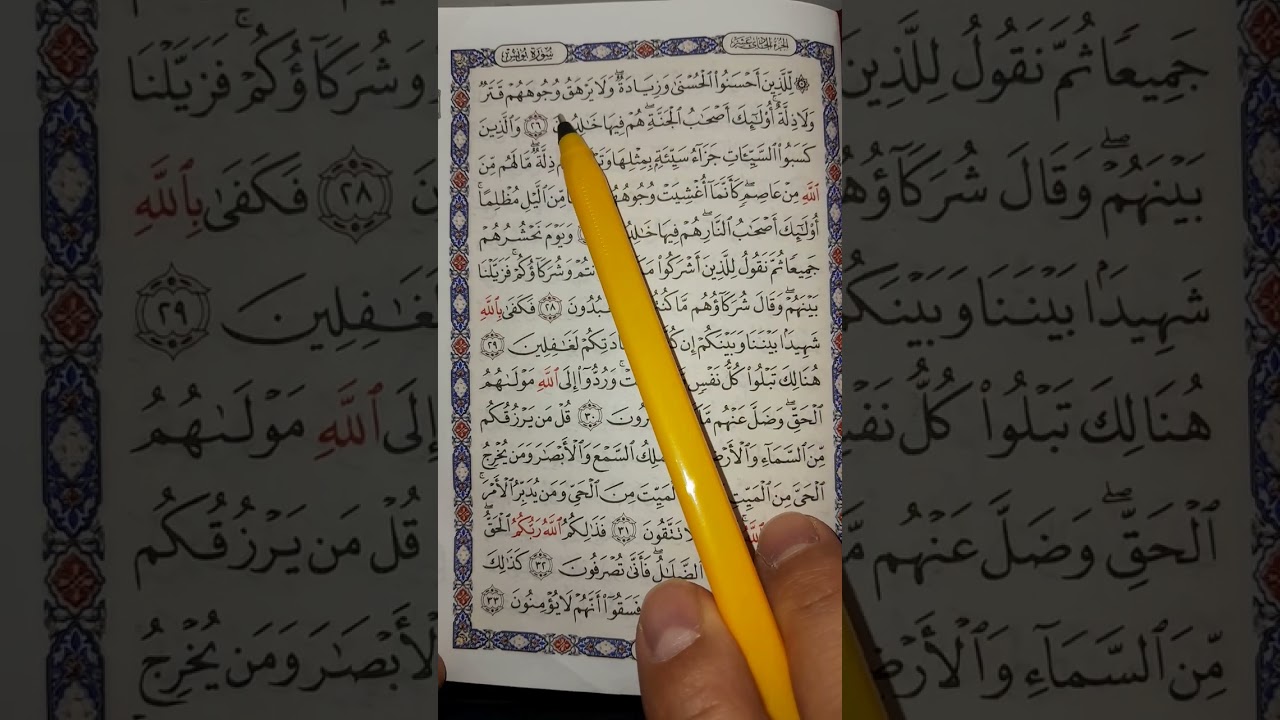 الجزء الحادي عشر
سورة يونس
۞ لِّلَّذِينَ أَحْسَنُوا۟ ٱلْحُسْنَىٰ وَزِيَادَةٌ ۖ وَلَا يَرْهَقُ وُجُوهَهُمْ قَتَرٌ
وَلَا ذِلَّةٌ ۚ أُو۟لَـٰٓئِكَ أَصْحَـٰبُ ٱلْجَنَّةِ ۖ هُمْ فِيهَا ٢٦ وَٱلَّذِينَ
كَسَبُوا۟ ٱلسَّيِّـَٔاتِ جَزَآءُ سَيِّئَةٍۭ بِمِثْلِهَا ذِلَّةٌ ۖ مَّا لَهُم مِّنَ
ٱللَّهِ مِنْ عَاصِمٍ ۖ كَأَنَّمَآ أُغْشِيَتْ مِّنَ ٱلَّيْلِ مُظْلِمًا ۚ
أُو۟لَـٰٓئِكَ أَصْحَـٰبُ ٱلنَّارِ ۖ هُمْ فِيهَا وَيَوْمَ نَحْشُرُهُمْ
جَمِيعًا ثُمَّ نَقُولُ لِلَّذِينَ أَشْرَكُوا۟ وَشُرَكَآؤُكُمْ ۚ فَزَيَّلْنَا
بَيْنَهُمْ ۖ وَقَالَ شُرَكَآؤُهُم مَّا ٢٨ فَكَفَىٰ بِٱللَّهِ
شَهِيدًۢا بَيْنَنَا وَبَيْنَكُمْ إِن لَغَـٰفِلِينَ ٢٩
هُنَالِكَ تَبْلُوا۟ كُلُّ نَفْسٍ وَرُدُّوٓا۟ إِلَى ٱللَّهِ مَوْلَىٰهُمُ
ٱلْحَقِّ ۖ وَضَلَّ عَنْهُم ٣٠ قُلْ مَن يَرْزُقُكُم
مِّنَ ٱلسَّمَآءِ ٱلسَّمْعَ وَٱلْأَبْصَـٰرَ وَمَن يُخْرِجُ
ٱلْحَىَّ مِنَ ٱلْمَيِّتِ ٱلْمَيِّتَ مِنَ ٱلْحَىِّ وَمَن يُدَبِّرُ ٱلْأَمْرَ ۚ
تَتَّقُونَ ٣١ فَذَٰلِكُمُ ٱللَّهُ رَبُّكُمُ ٱلْحَقُّ ۖ
ٱلضَّلَـٰلُ ۖ فَأَنَّىٰ تُصْرَفُونَ ٣٢ كَذَٰلِكَ
فَسَقُوٓا۟ أَنَّهُمْ لَا يُؤْمِنُونَ ٣٣